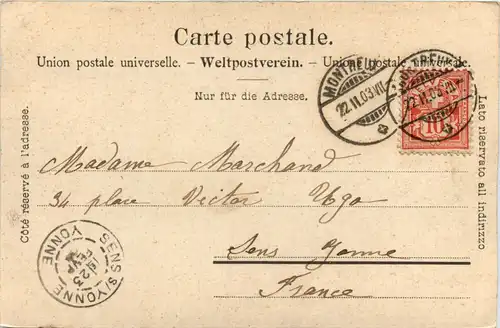 Carte postale.
Union postale universelle. – Weltpostverein. – Unione postale universale.
Nur für die Adresse.
Côté réservé à l'adresse.
Lato riservato all indirizzo
MONTREUX
22.II.03.VII
MONTREUX
22.II.03.VII
10
Madame Marchand
34 place Victor Ugo
Sens Yonne
France
SENS S/YONNE
23
YONNE